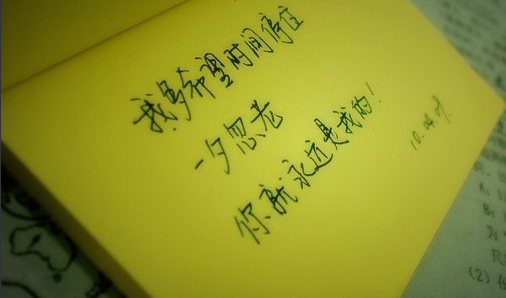 我多希望时间停住
一夕忽老
你就永远是我的!
10.04.09
(2)